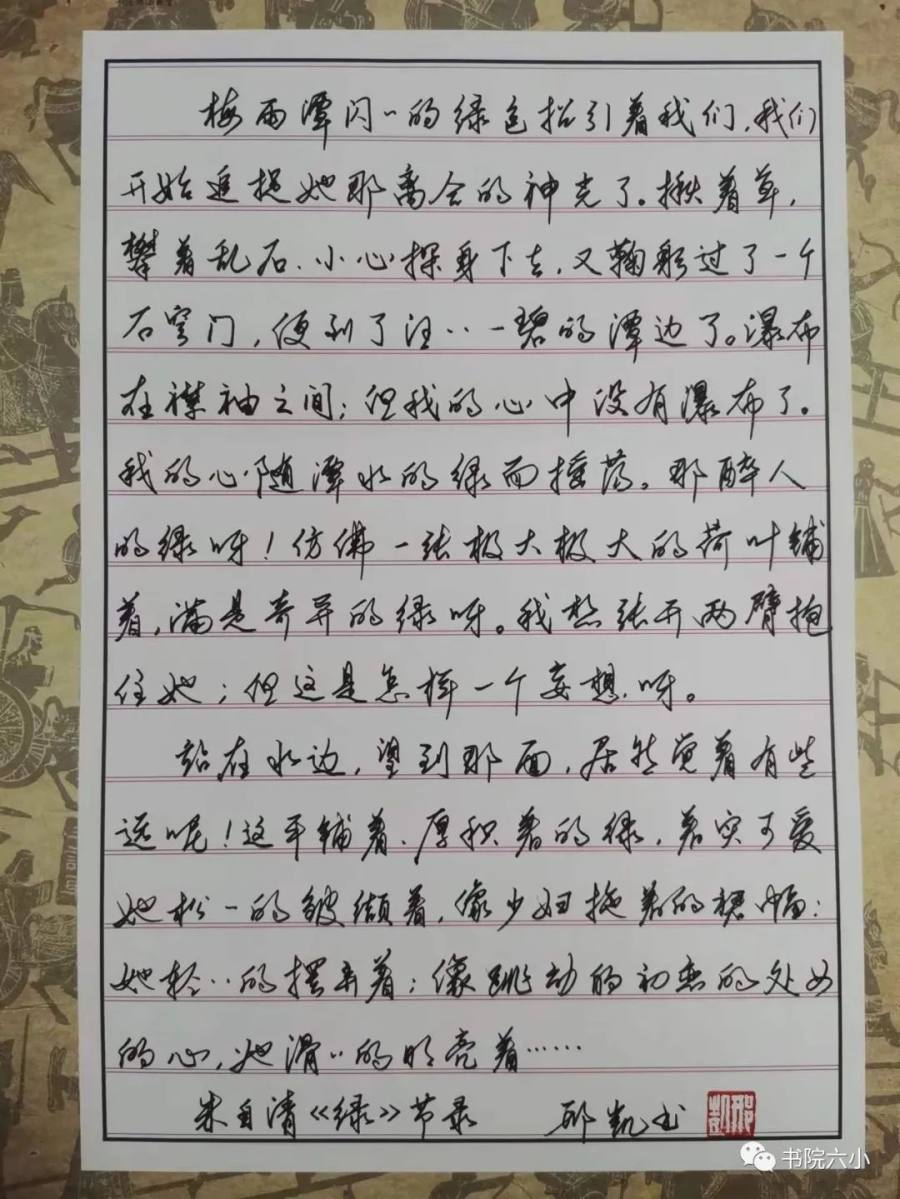 梅雨潭闪〻的绿色招引着我们，我们
开始追捉她那离合的神光了。揪着草，
攀着乱石、小心探身下去，又鞠躬过了一个
石穹门，便到了汪〻一碧的潭边了。瀑布
在襟袖之间；但我的心中没有瀑布了。
我的心随潭水的绿而摇荡。那醉人
的绿呀！仿佛一张极大极大的荷叶铺
着，满是奇异的绿呀。我想张开两臂抱
住她；但这是怎样一个妄想呀。
站在水边，望到那面，居然觉着有些
远呢！这平铺着、厚积着的绿，着实可爱
她松〻的皱缬着，像少妇拖着的裙幅；
她轻〻的摆弄着；像跳动的初恋的处女
的心，她滑〻的明亮着……
朱自清《绿》节录 邢凯书
邢凯
书院六小